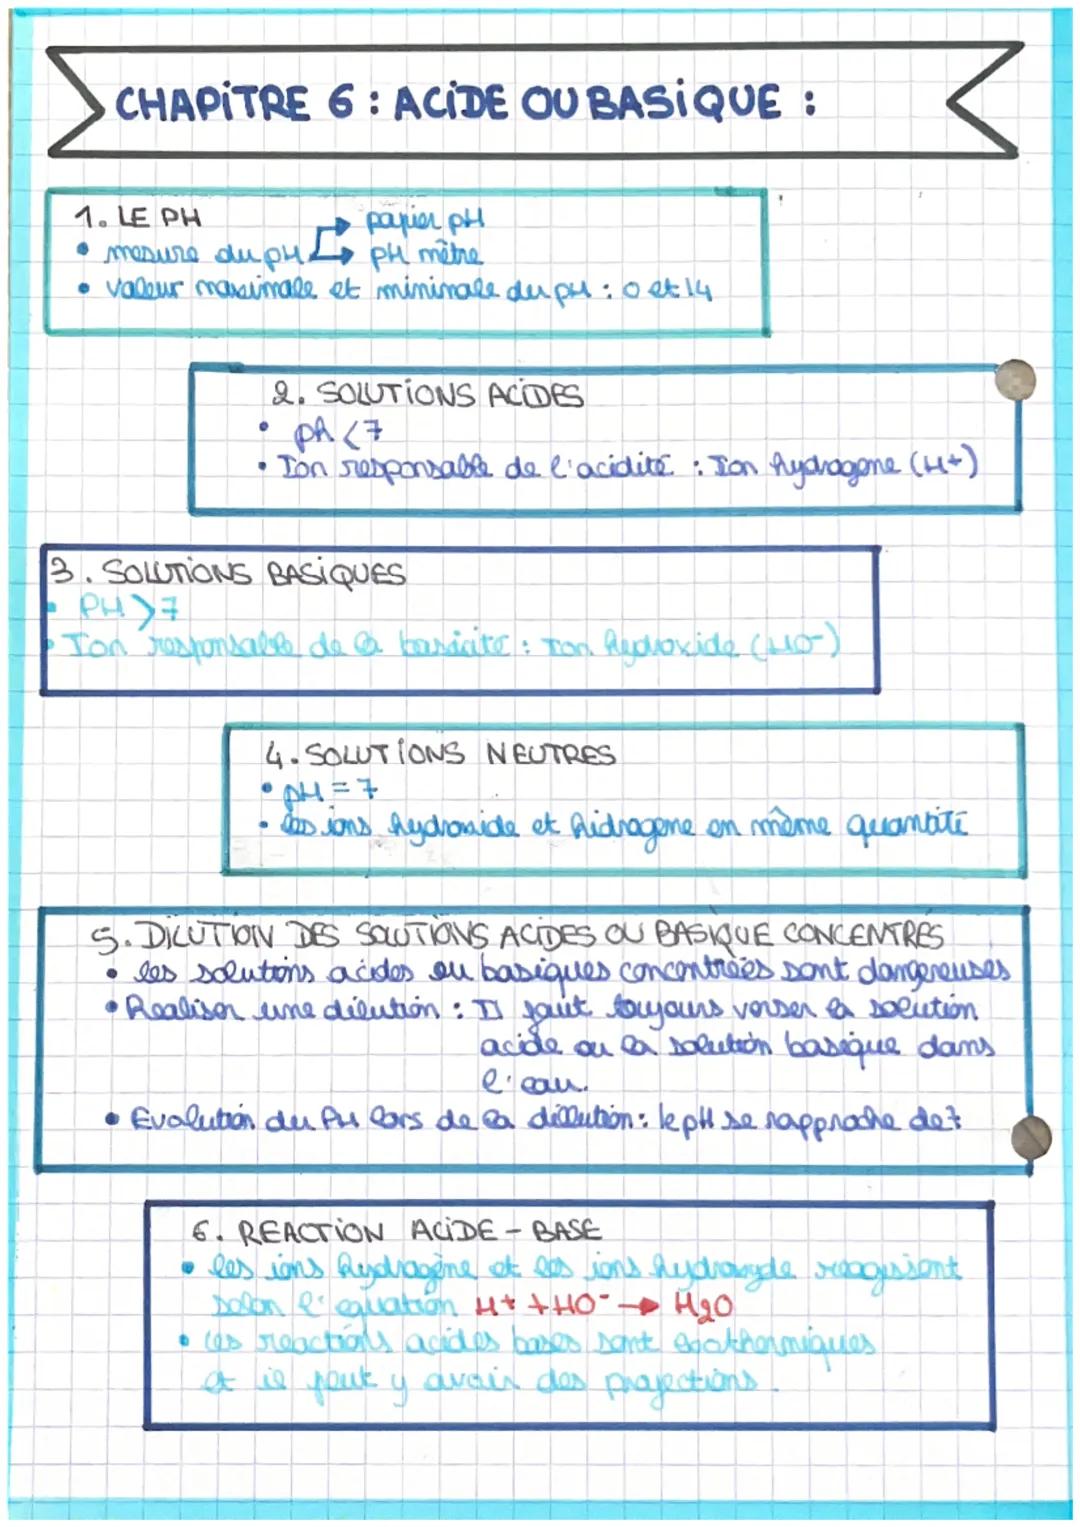 CHAPITRE 6 : ACIDE OU BASIQUE :
1. LE PH
papier pH
• mesure du pH
pH mètre
• valeur maximale et minimale du pH : 0 et 14
2. SOLUTIONS ACIDES
• ph < 7
• Ion responsable de l'acidité : Ion hydrogene (H+)
3. SOLUTIONS BASIQUES
• PH > 7
• Ion responsable de la basicité : Ion hydroxide (HO-)
4. SOLUTIONS NEUTRES
• pH = 7
• les ions hydroxide et hidrogene en même quantité
5. DILUTION DES SOLUTIONS ACIDES OU BASIQUE CONCENTRES
• les solutions acides ou basiques concentrées sont dangereuses
• Realiser une dilution : Il faut toujours verser la solution
acide ou la solution basique dans
l'eau.
• Evolution du PH lors de la dillution : le pH se rapproche de 7
6. REACTION ACIDE - BASE
• les ions hydrogène et les ions hydroxyde reagissent
selon l'equation H+ + HO- → H2O
• les reactions acides bases sont exothermiques
et il peut y avoir des projections.